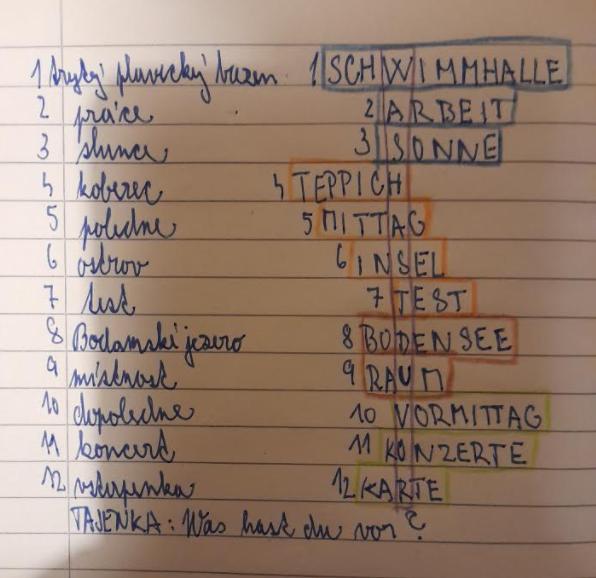 1 krytý plavecký bazen 1 SCHWIMMHALLE
2 práce 2 ARBEIT
3 slunce 3 SONNE
4 koberec 4 TEPPICH
5 poledne 5 MITTAG
6 ostrov 6 INSEL
7 test 7 TEST
8 Bodamské jezero 8 BODENSEE
9 místnost 9 RAUM
10 dopoledne 10 VORMITTAG
11 koncert 11 KONZERTE
12 vstupenka 12 KARTE
TAJENKA: Was hast du vor?